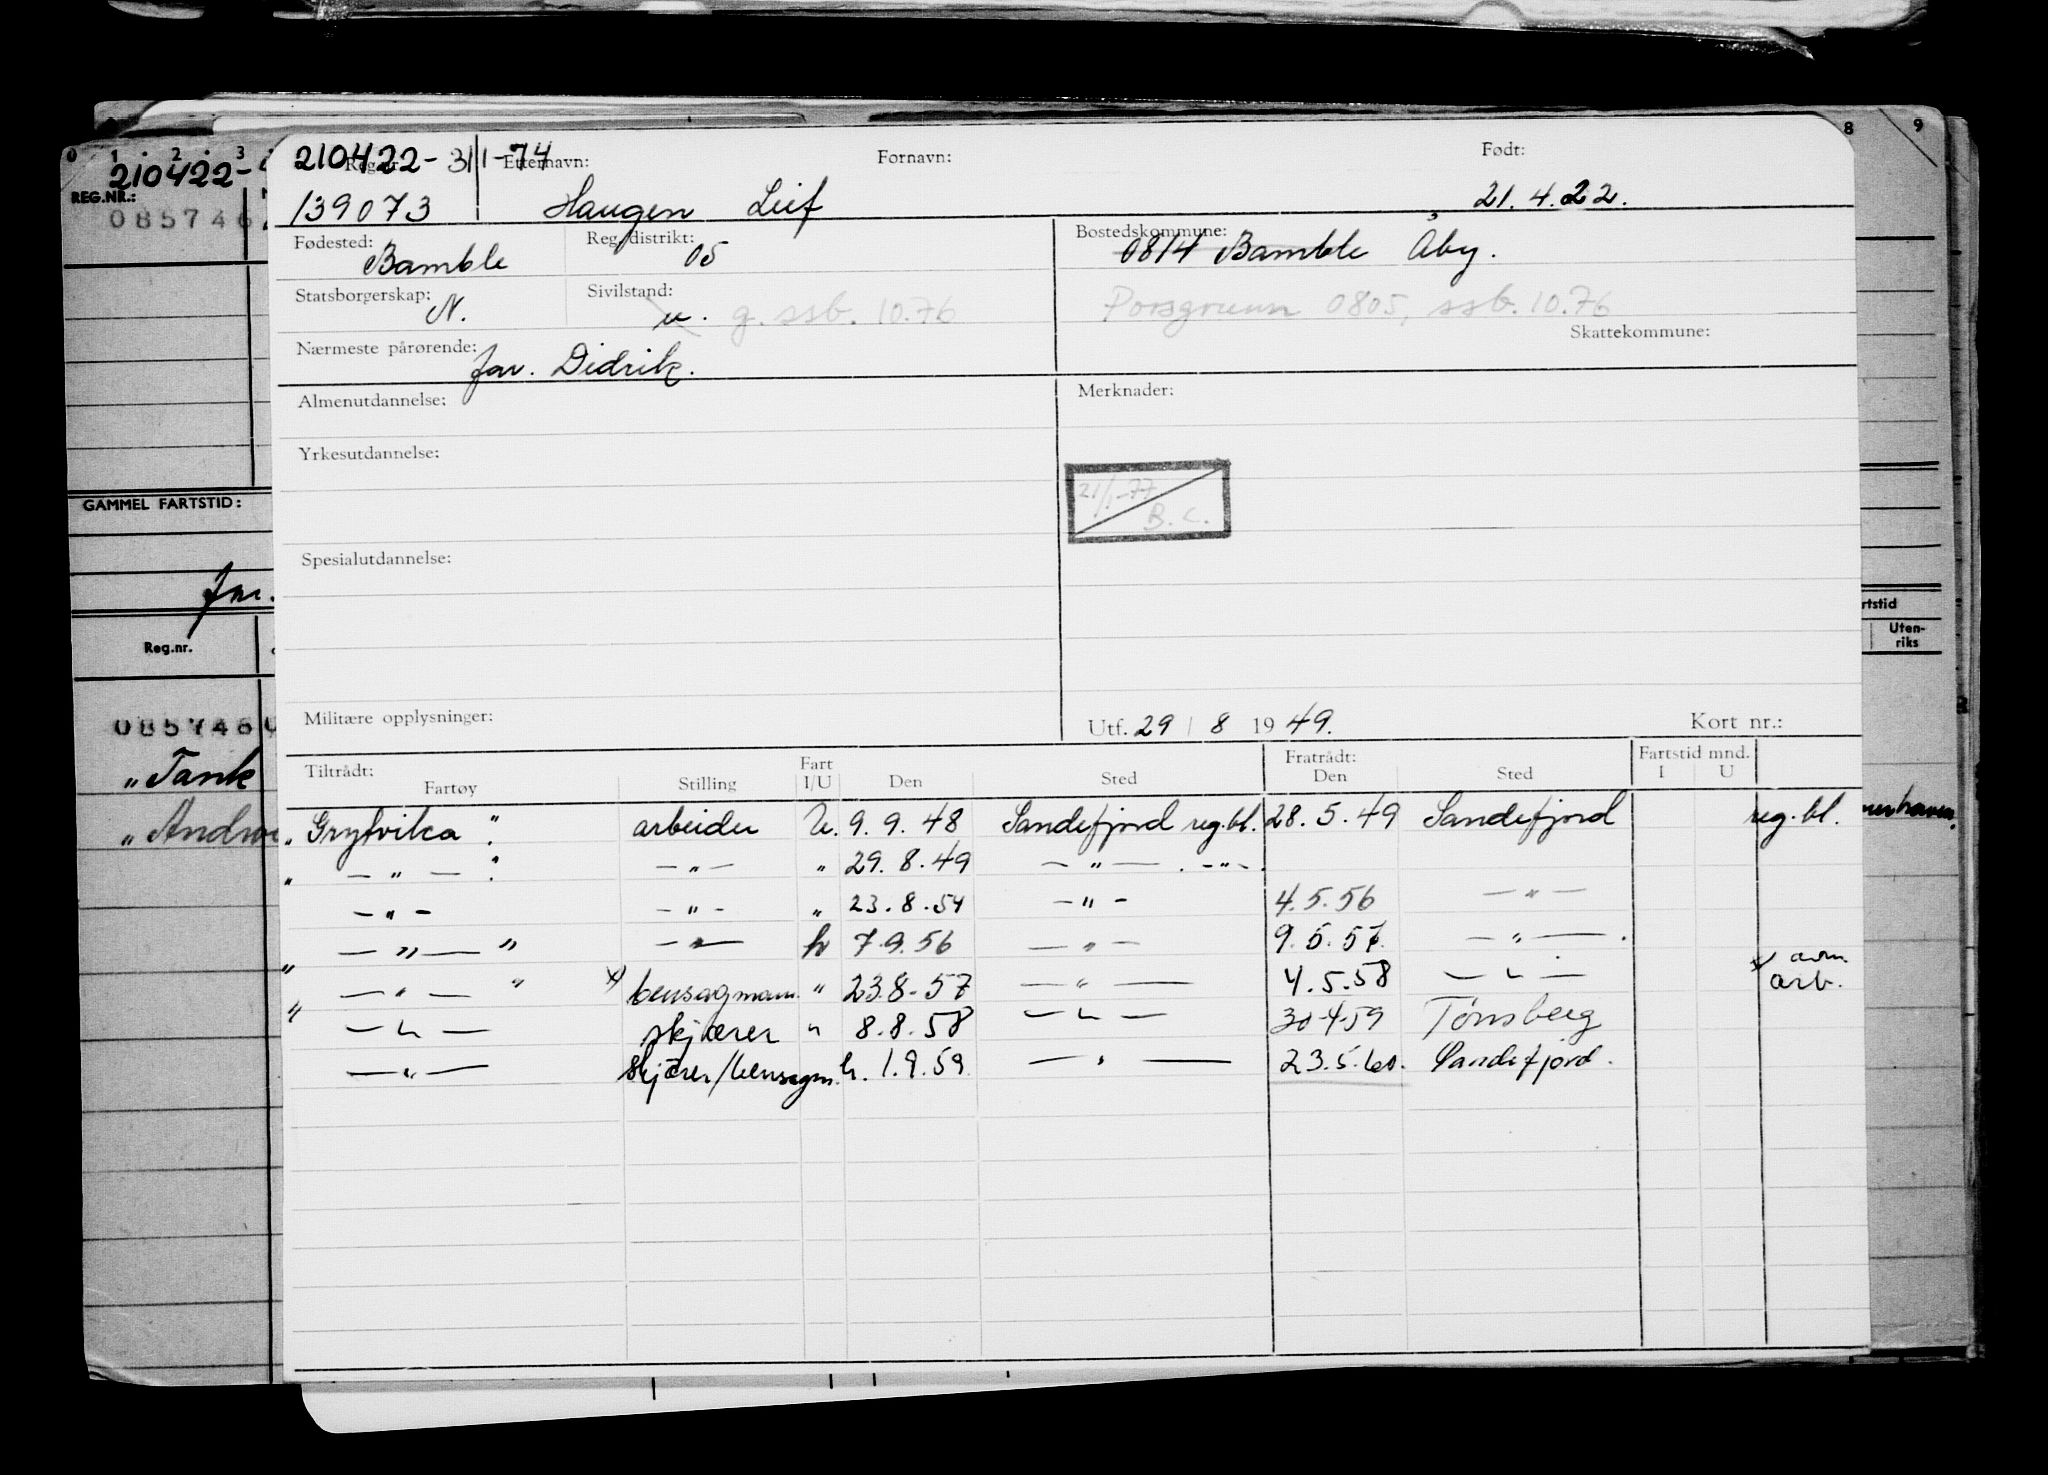 8 9
0 1 2 3
210422-
REG.NR.:
085746
GAMMEL FARTSTID:
far.
Reg.nr.
085746
„ Tank
„ Andr
rtstid
Uten-
riks
Reg.nr. Etternavn: Fornavn: Født:
210422-31/1-74
139073 Haugen Leif 21.4.22.
Fødested: Bamble Reg. distrikt: 05 Bostedskommune: 0814 Bamble Åby.
Statsborgerskap: N. Sivilstand: u. g. ssb. 10.76 Porsgrunn 0805, ssb. 10.76
Skattekommune:
Nærmeste pårørende: far. Didrik.
Almenutdannelse: Merknader:
Yrkesutdannelse:
21/1-77
B.C.
Spesialutdannelse:
Militære opplysninger: Utf. 29 / 8 1949. Kort nr.:
Tiltrådt: Fart Fratrådt: Fartstid mnd.
Fartøy Stilling I/U Den Sted Den Sted I U
„ Grytvika " arbeider U. 9.9.48 Sandefjord reg.bl. 28.5.49 Sandefjord reg.bl.
„ — " — " — " — „ 29.8.49 — " — . - " - .
— " — — " — „ 23.8.54 — " — 4.5.56 — " —
„ — " — " — " — h 7.9.56 — " — 9.5.57. — " — .
„ — " — " x) bensagmann „ 23.8-57 — " — 4.5.58 — " — x) avm. arb.
— " — skjærer " 8.8.58 — " — 30-4-59 Tønsberg
— " — skjærer/bensagm. h. 1.9.59 — " — 23.5.60. Sandefjord.